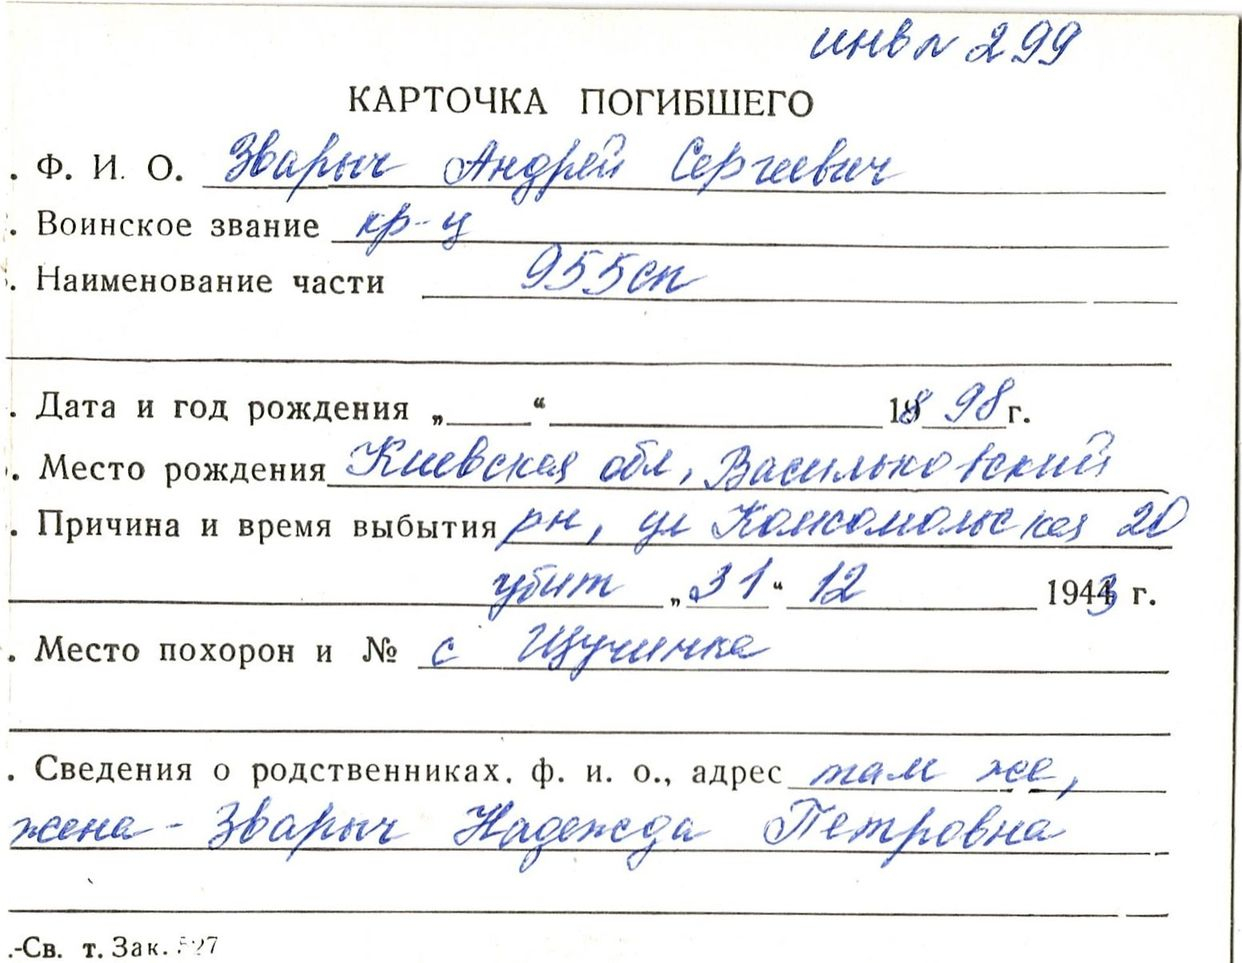 инв № 299
КАРТОЧКА ПОГИБШЕГО
. Ф. И. О. Зварыч Андрей Сергеевич
. Воинское звание кр-ц
. Наименование части 955сп
. Дата и год рождения „ “ 1898 г.
. Место рождения Киевская обл, Васильковский
. Причина и время выбытия рн, ул Комсомольская 20
убит „31“ 12 1943 г.
. Место похорон и № с Щучинка
. Сведения о родственниках. ф. и. о., адрес там же,
жена - Зварыч Надежда Петровна
.-Св. т. Зак.